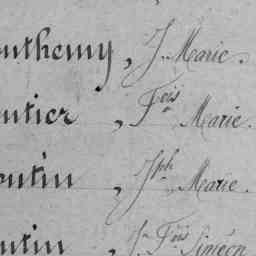 onthemy, J. Marie.
ontier, Fois Marie.
outin, Jph Marie.
outin, Jn Fois Siméon